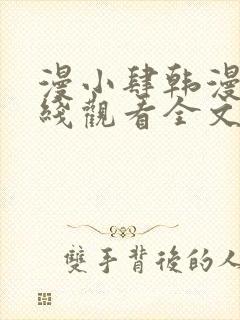 漫小肆韩漫
綫觀看全文
雙手背後的人